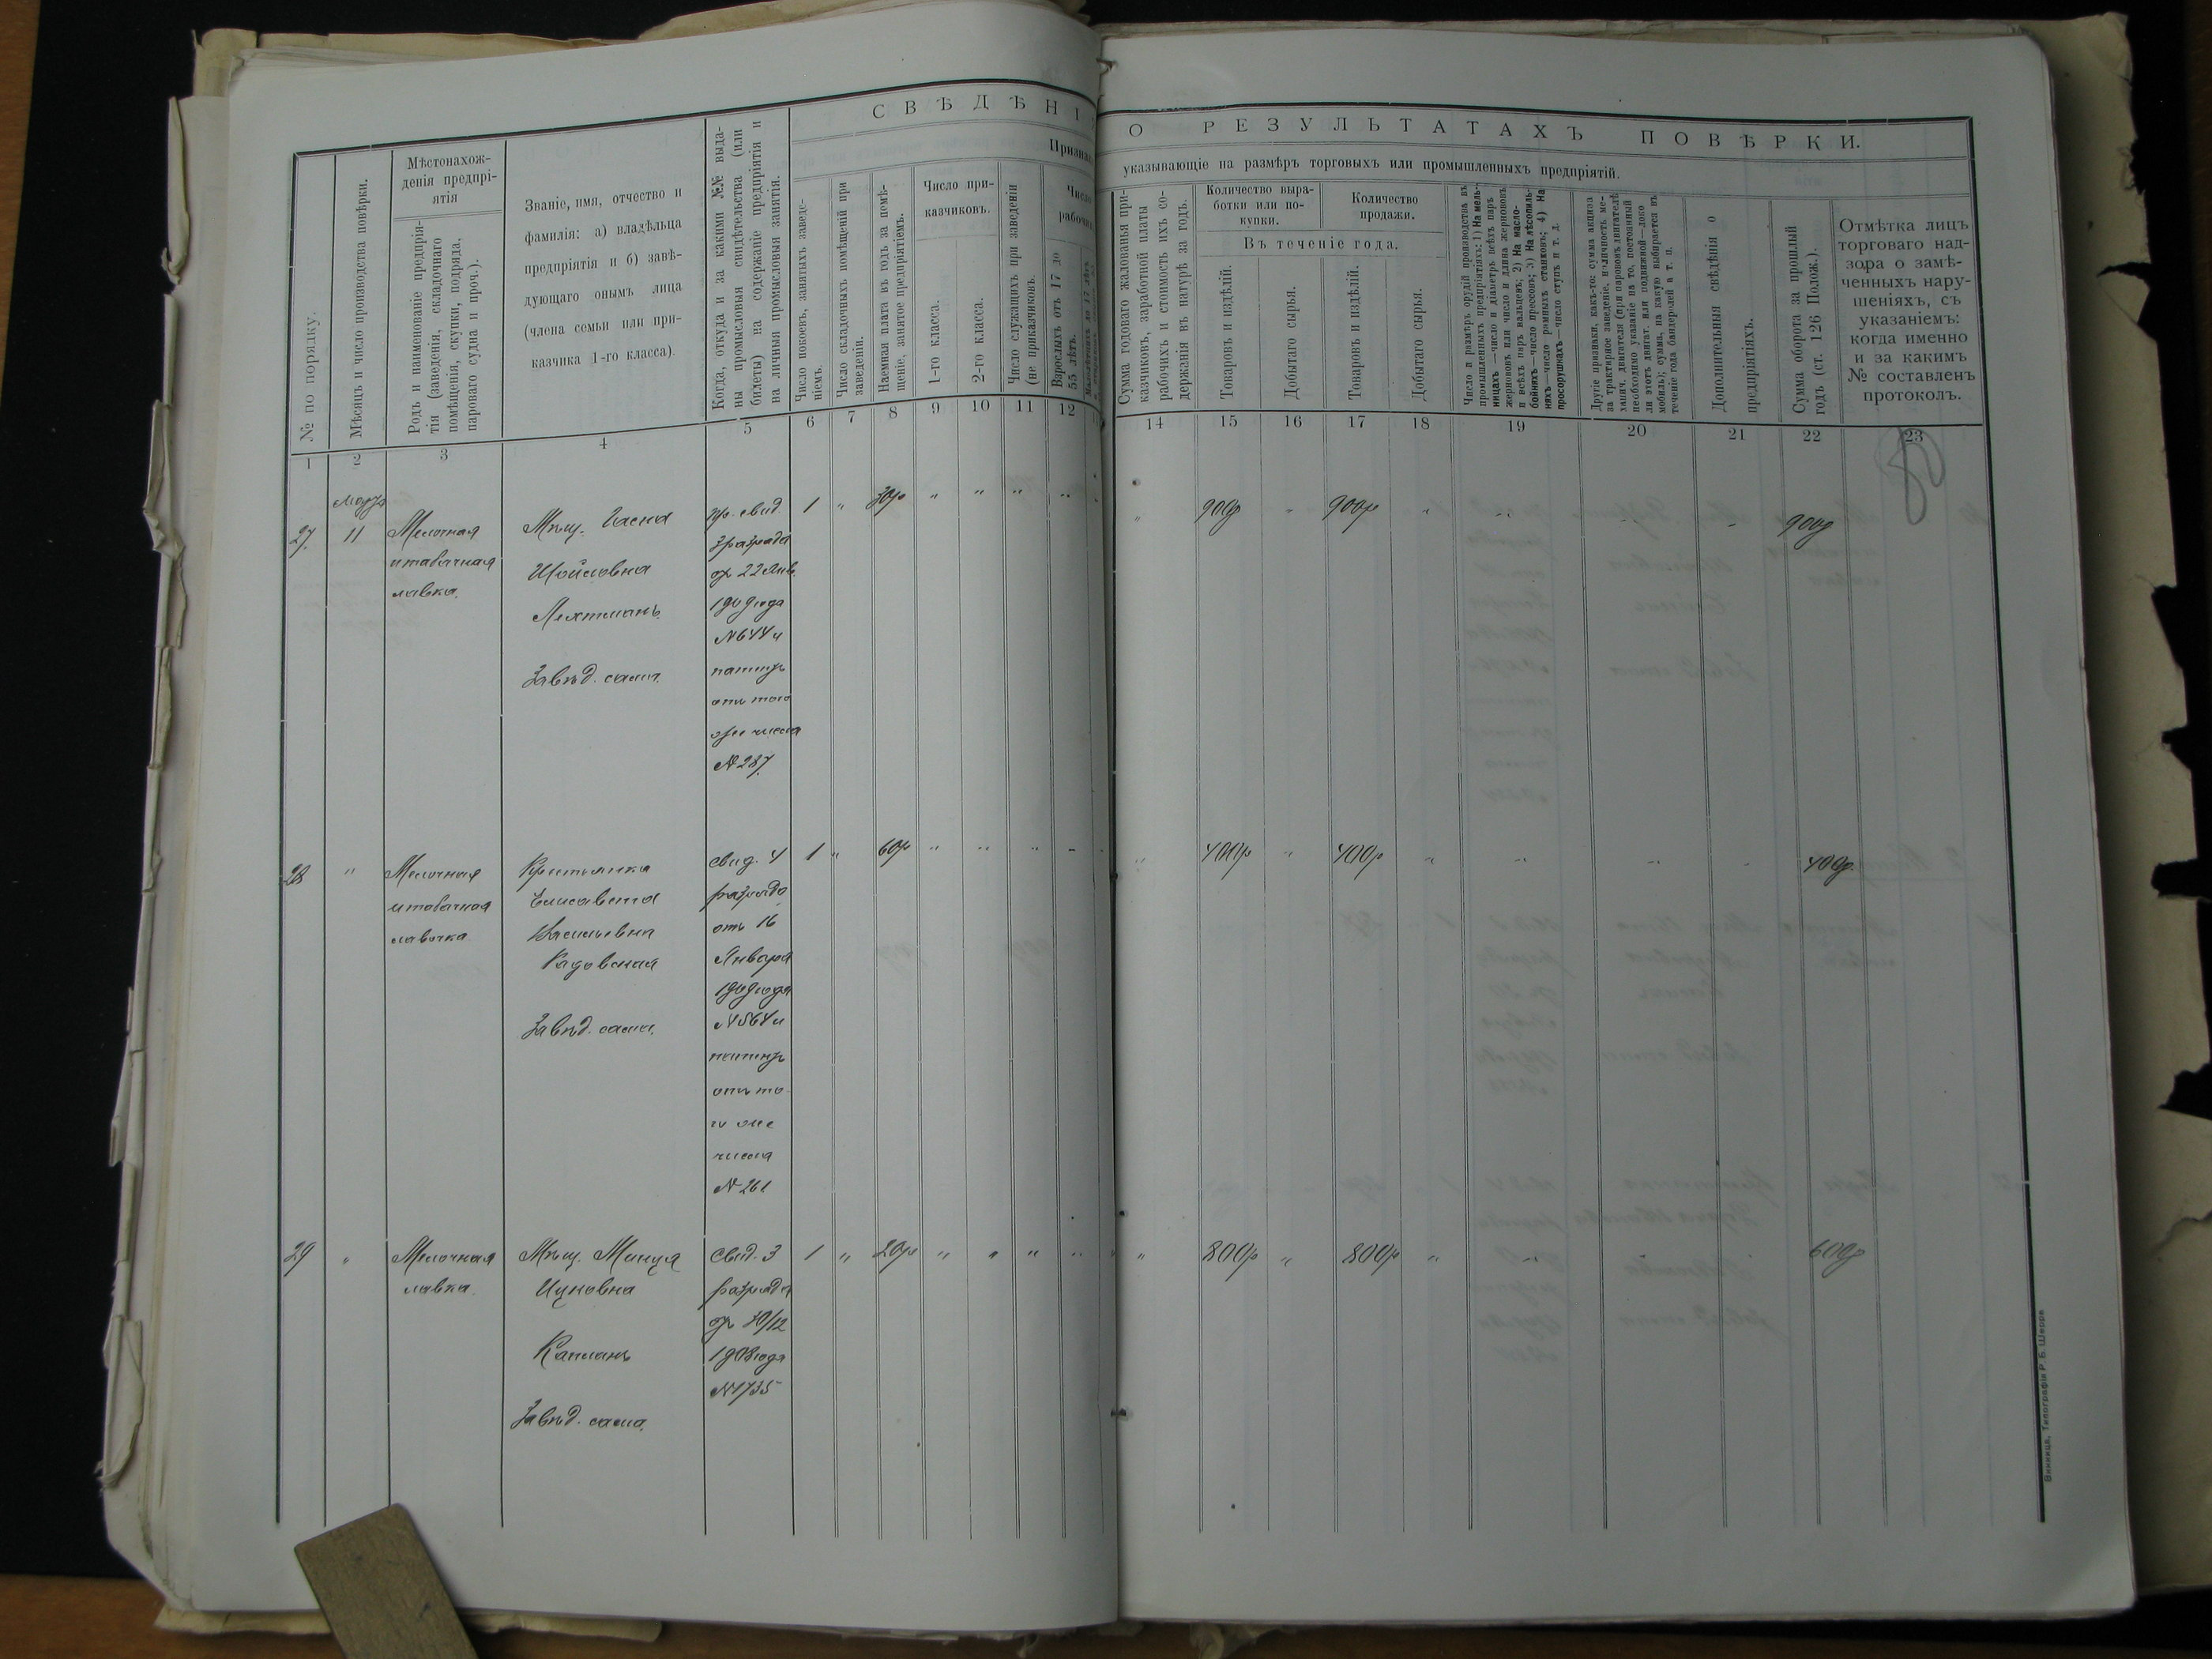 СВѢДѢНІ
О РЕЗУЛЬТАТАХЪ ПОВѢРКИ.
Признак
указывающіе на размѣръ торговыхъ или промышленныхъ предпріятій.
№ по порядку.
Мѣсяцъ и число производства повѣрки.
Мѣстонахож-
денія предпрі-
ятія
Родъ и наименованіе предпрія-
тія (заведенія, складочнаго
помѣщенія, скупки, подряда,
пароваго судна и проч.).
Званіе, имя, отчество и
фамилія: а) владѣльца
предпріятія и б) завѣ-
дующаго онымъ лица
(члена семьи или при-
казчика 1-го класса).
Когда, откуда и за какими №№ выда-
ны промысловыя свидѣтельства (или
билеты) на содержаніе предпріятія и
на личныя промысловыя занятія.
Число покоевъ, занятыхъ заведе-
ніемъ.
Число складочныхъ помѣщеній при
заведеніи.
Наемная плата въ годъ за помѣ-
щеніе, занятое предпріятіемъ.
Число при-
казчиковъ.
1-го класса.
2-го класса.
Число служащихъ при заведеніи
(не приказчиковъ.
Число
рабочи
Взрослыхъ отъ 17 до
55 лѣтъ.
Сумма годоваго жалованья при-
казчиковъ, заработной платы
рабочихъ и стоимость ихъ со-
держанія въ натурѣ за годъ.
Количество выра-
ботки или по-
купки.
Количество
продажи.
Въ теченіе года.
Товаровъ и издѣлій.
Добытаго сырья.
Товаровъ и издѣлій.
Добытаго сырья.
Число и размѣръ орудій производства въ
промышленныхъ предпріятіяхъ: 1) На мель-
ницахъ—число и діаметръ всѣхъ паръ
жернововъ или число и длина жернововъ
и всѣхъ паръ вальцевъ; 2) На масло-
бойняхъ—число прессовъ; 3) На лѣсопиль-
няхъ—число рамныхъ станковъ; 4) На
просорушкахъ—число ступъ и т. д.
Другіе признаки, какъ-то: сумма акциза
за трактирное заведеніе, наличность ме-
ханич. двигателя (при паровомъ двигателѣ
необходимо указаніе на то, постоянный
ли этотъ двигат. или подвижной—локо
мобиль); сумма, на какую выбирается въ
теченіе года бандеролей и т. п.
Дополнительныя свѣдѣнія о
предпріятіяхъ.
Сумма оборота за прошлый
годъ (ст. 126 Полож.).
Отмѣтка лицъ
торговаго над-
зора о замѣ-
ченныхъ нару-
шеніяхъ, съ
указаніемъ:
когда именно
и за какимъ
№ составленъ
протоколъ.
1 2 3 4 5 6 7 8 9 10 11 12
14 15 16 17 18 19 20 21 22 23
80
Марта
27. 11 Мелочная
и табачная
лавка.
Мѣщ.
Шойловна
Лехтманъ
Завѣд. сама.
пр. свид.
3 разряда
от 22 Янв.
1909 года
№ 644 и
патентъ
отъ того
же числа
№ 237.
1 " 30р " " " "
" 900р 900р " " " 900р
28 " Мелочная
и табачная
лавочка
Крестьянка
Елисавета
Васильевна
Радовская
Завѣд. сама.
свид. 4
разряда
отъ 16
Января
1909 года
№ 564 и
патентъ
отъ то-
го же
числа
№ 261
1 " 60р " " " "
" 400р " 400р " " " " 400р.
29 " Мелочная
лавка.
Мѣщ.
Ицковна
Капланъ
Завѣд. сама.
Свид. 3
разряда
от 30/12
1908 года
№ 1735
1 " 20р " " " "
" 800р " 800р " " 600р
Винница, Типографія Р. Б. Шерръ